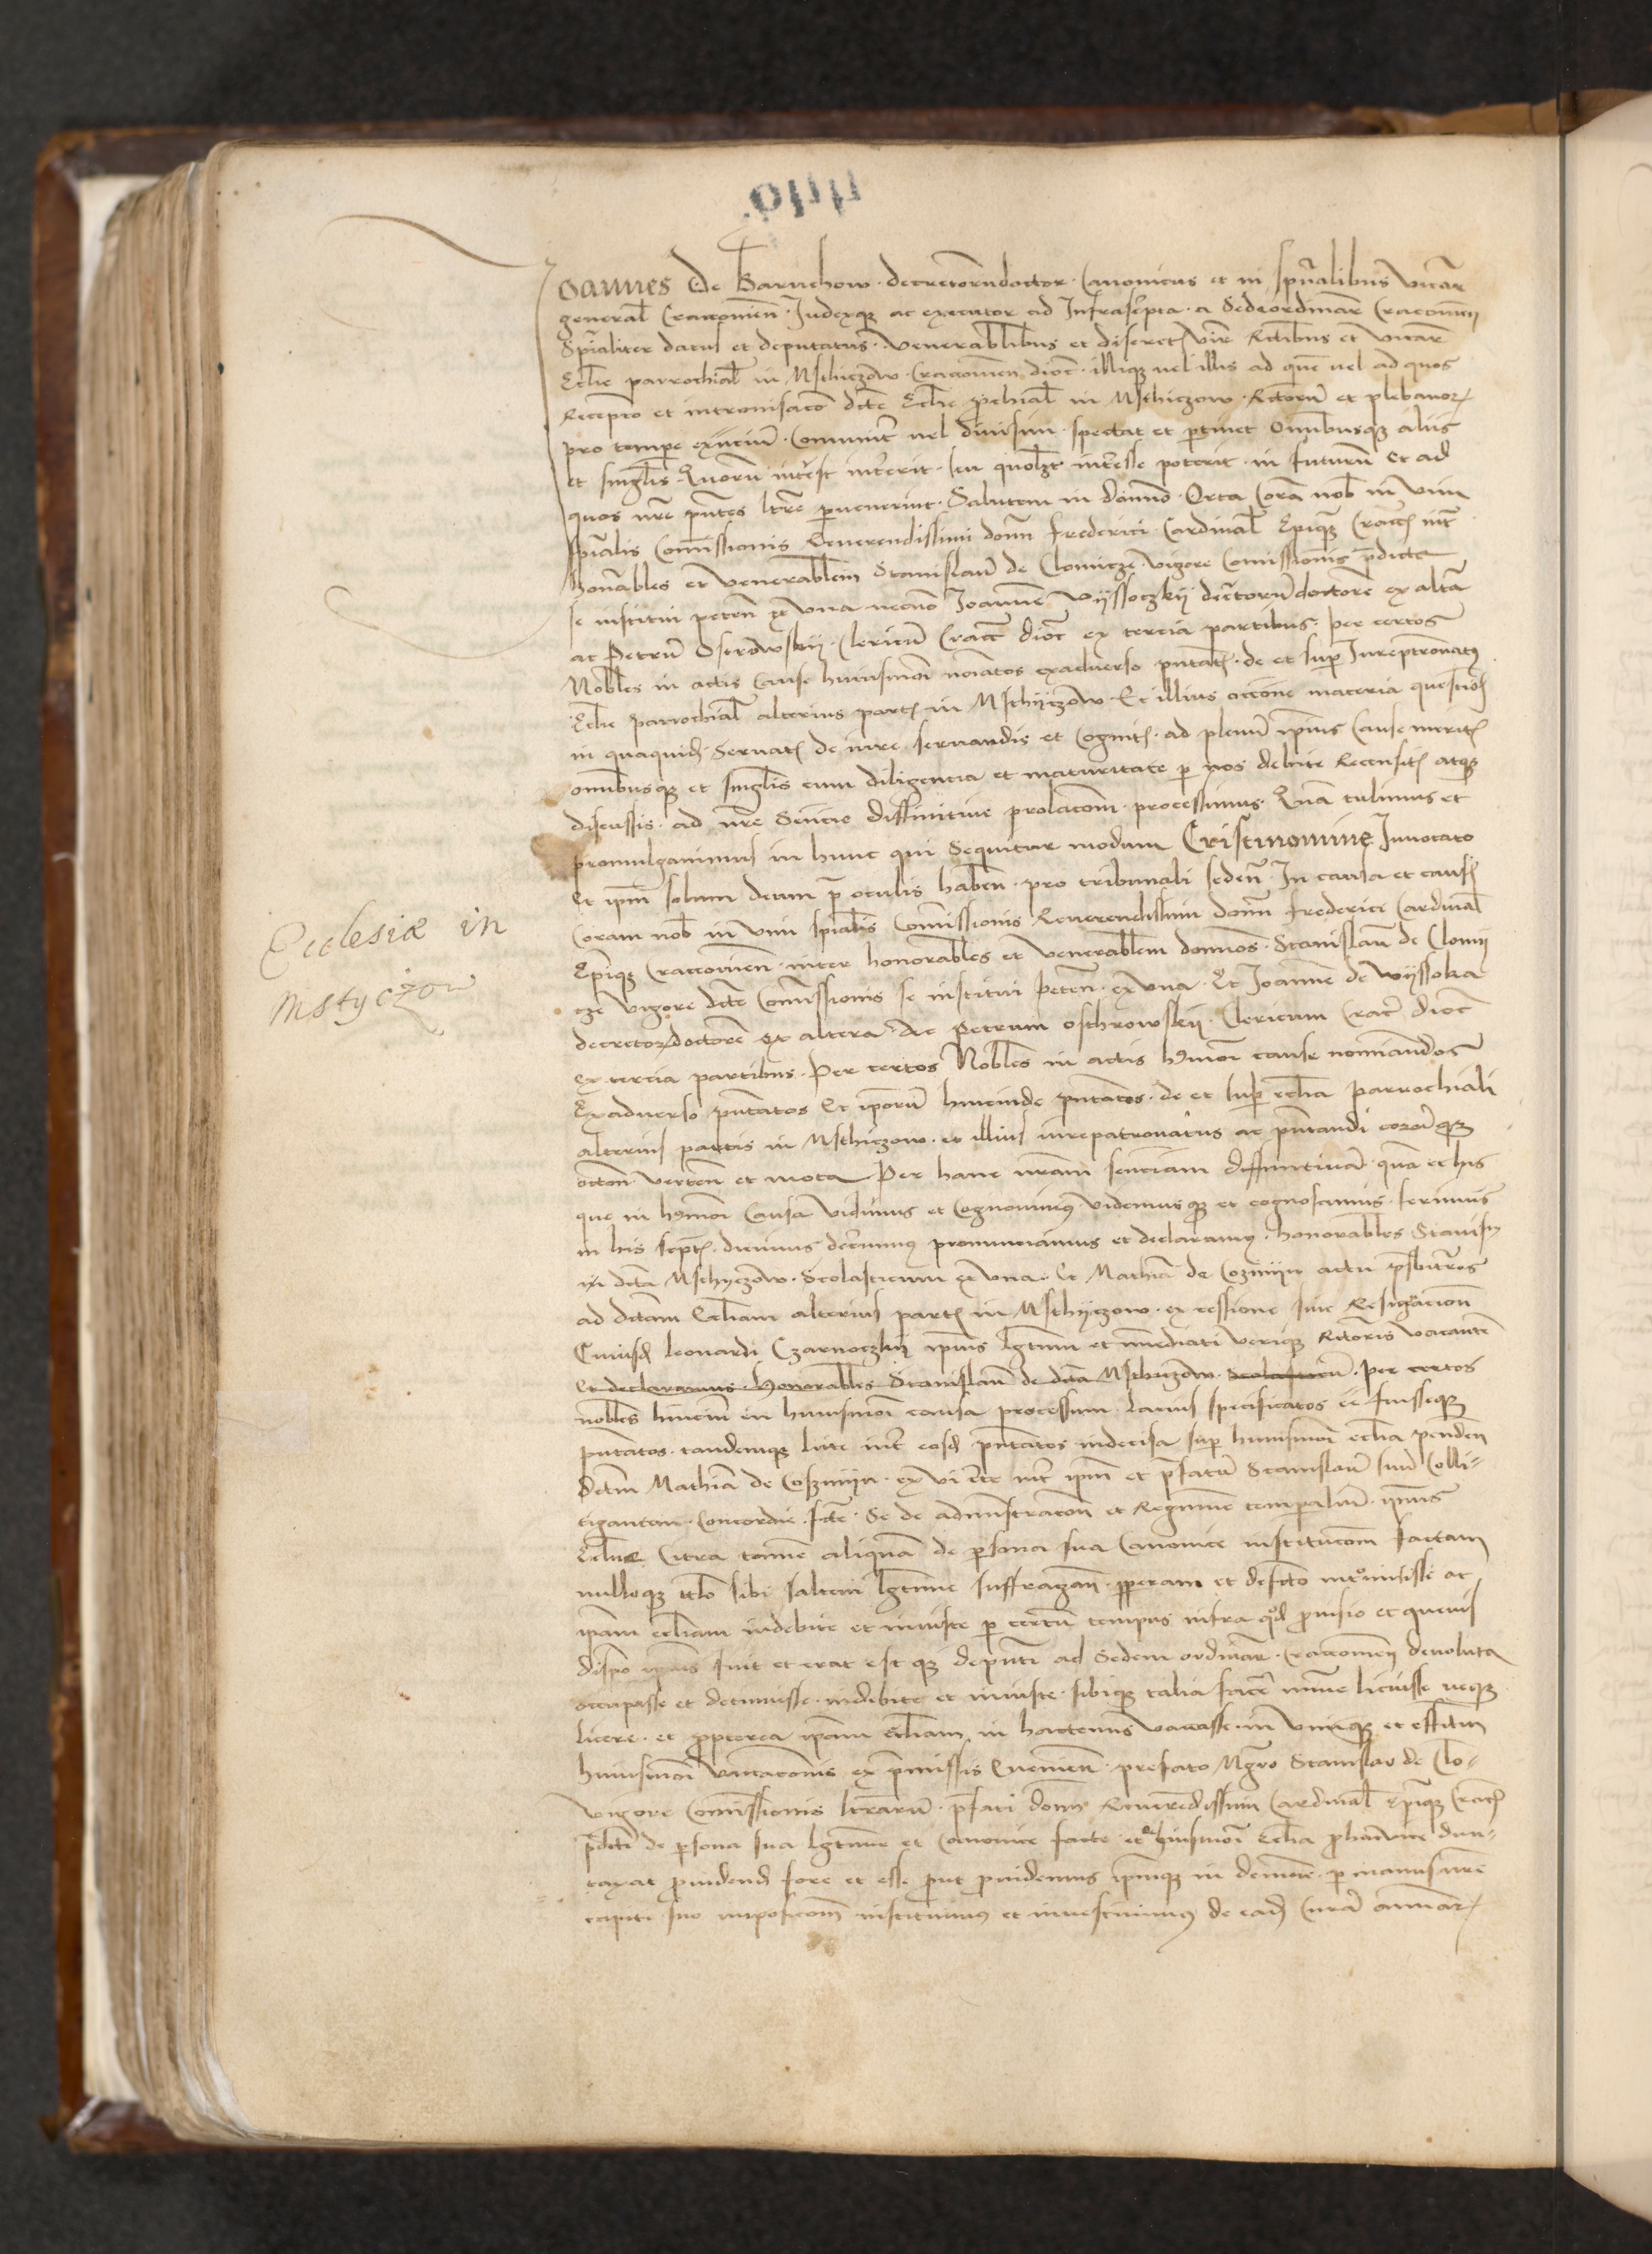 Joannes De Baruchow · decretorum doctor · Canonicus et in spualibus vicari
general Cracouien · Judexqz ac executor ad Infrascripta · a Sede ordinar Cracouien
Spialiter datus et deputatus · Venerablibus et discret vir Rectoribus et vicar
Eclie parrochial in Msthiczow · Cracouien dioc · illiqz uel illis ad quem uel ad quos
Recepcio et intromissaco dcte Eclie prochial in Msthiczow · Rectorum et plebanor
pro tempe exncium · Communiter uel diuisim · spectat et ptinet Omibusqz aliis
et singlis Quorum interest intererit · seu quolzt interesse poterit · in futurum et ad
quos nre pntes lre puenerint · Salutem in domino · Orta Coram nob in vim
spialis Comissionis Reuerendissimi domi Frederici Cardinal Epiqz Cracoc int
honorables et Venerablem Stanislaum de Clomicze · vigore comissionis predicte
se institui peten ex vna necno Joannem Wyssoczkij decretorum doctorem ex altera
ac Petrum Ostrowskij · Clericum Cracc dioc ex tercia partibus · per certos
Nobles in actis Cause huiusmodi noiatos exaduerso pntatos · de et sup Jurepatronatus
Eclie parrochial alterius partis in Msthyczow · Et illius occone materia questiois
in quaquid Seruatis de iure seruandis et Cognitis · ad plenum ipius Cause meritis
omibusqz et singlis cum diligencia et maturitate p nos debite Recensitis atqz
discussis · ad nre Sentencie diffinitiue prolacom · processimus · Quam tulimus et
promulgauimus in hunc qui Sequitur modum Cristinomine Inuocato
Et ipm solum deum pre oculis haben · pro tribunali seden · In causa et causis
Coram nob in vim spialis Comissionis Reuerendissimi domi frederici Cardinal
Epiqz Cracouien · inter honorables et venerablem dominos · Stanislaum de Clomij
cze vigore dcte Comissionis se institui peten · ex vna · Et Joannem de Wyssoka
decretor doctorem ex altera · Ac Petrum Osthrowskij · Clericum Crac dioc
ex tercia partibus · Per certos Nobles in actis hmoi cause nominandos
Exaduerso pntatos Et iporum hincinde pntatos · de et sup eclia parrochiali
alterius partis in Msthiczow · et illius iurepatronatus ac pntandi eorumqz
occon verten et mota Per hanc nram sentenciam diffinitiuam · quam et his
que in hmoi Causa Vidimus et Cognouimus Videmusqz et cognoscimus · ferimus
in his scriptis · dicimus decernimus pronunciamus et declaramus · honorables Stanisl
in dcta Msthyczow · Scolasticum ex vna · Et Mathiam de Cozmijn actu presbiteros
ad dctam Ecliam alterius partis in Msthyczow · ex cessione siue Resignacione
Cuiusd Leonardi Czarnoczkij ipius lgtimi et immediati veriqz Rectoris vacantem
Et declaramus · Honorables Stanislaum de dcta Msthiczow · Scolasticum · per certos
nobles hincinde in huiusmodi causa processum · lacius specificatos ee fuisseqz
pntatos · tandemqz lite int eosd pntatos indecisa sup huiusmodi eclia penden
Dctum Mathiam de Cosmijn · ex vi certe int ipm et prefatum Stanislaum suum Colli-
tigantem · Concordie · fcte · Se de administracione et Regimine temporalium ipius
Eclie Citra tamen aliquam de persona sua Canonice institucom factam
nulloqz titlo sibi saltem lgtime suffragan · pperam et defcto intromisisse ac
ipam ecliam indebite et iniuste p certum tempus infra quod prouisio et queuis
dispo ipius fuit et erat est qz deputi ad Sedem ordinar · Cracouien deuoluta
occupasse et detinuisse · indebite et iniuste · sibiqz talia facere minime licuisse neqz
licere · et propterea ipam ecliam in hactenus vacasse · in vimqz et effectum
huiusmodi vacacionis ex premissis Euenien · prefato Mgro Stanislao de Clo-
Vigore Comissionis literarum · prefati domi Reuerendissimi Cardinal Epiqz Cracc
predicti de persona sua lgtime et Canonice facte · et de huiusmodi Eclia pro hac vice dun-
taxat prouidend fore et esse put prouidemus ipmqz in demum · p manus nre
capiti suo imposicom instituimus et inuestiuimus de ead Curam animar
Ecclesiæ in
Mstyczow